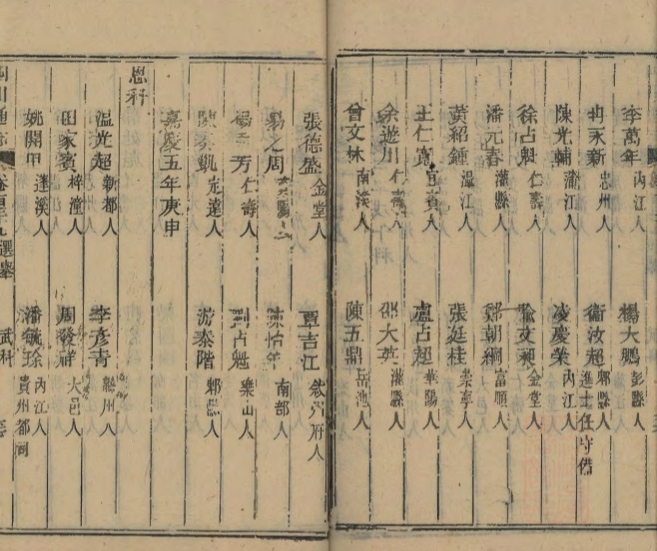 李萬年 內江人 楊大鵬 彭縣人
冉永新 忠州人 衛汝超 郫縣人 進士任守備
陳光輔 蒲江人 凌慶榮 內江人
徐占魁 仁壽人 金堂人
潘元春 灌縣人 鄭朝綱 富順人
黃紹鍾 溫江人 張廷桂 崇寧人
王仁寬 宜賓人 盧占超 華陽人
余遊川 仁壽人 邵大英 灌縣人
曾文林 南溪人 陳五鼎 岳池人
張德盛 金堂人 覃吉江 敘州府人
之周 南部人
芳 仁壽人 占魁 樂山人
凱 達人 游泰階 郫縣人
嘉慶五年庚申
恩科
溫光超 新都人 李彥青 人
田家賓 梓潼人 周發祥 大邑人
姚開甲 蓬溪人 潘毓珍 內江人 貴州都司
四川通志 選舉 武科